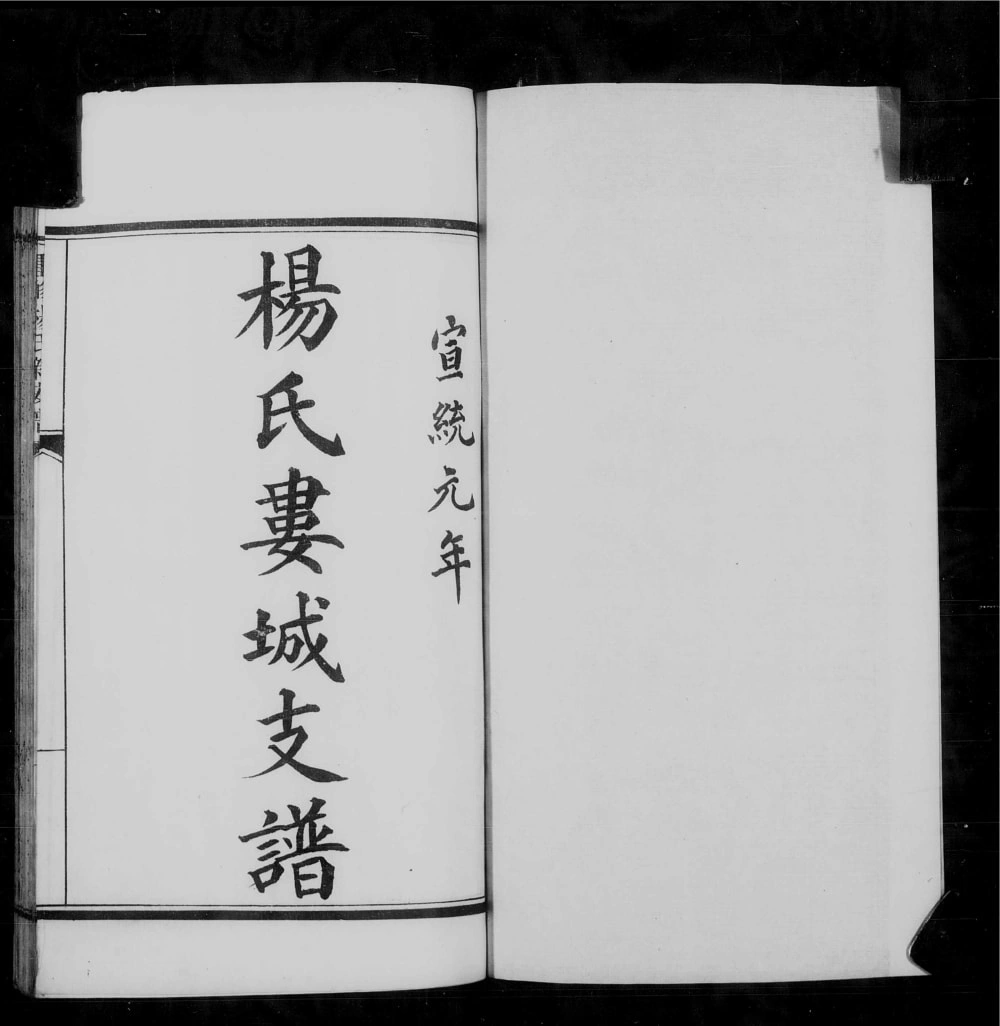 宣統元年
楊氏婁城支譜